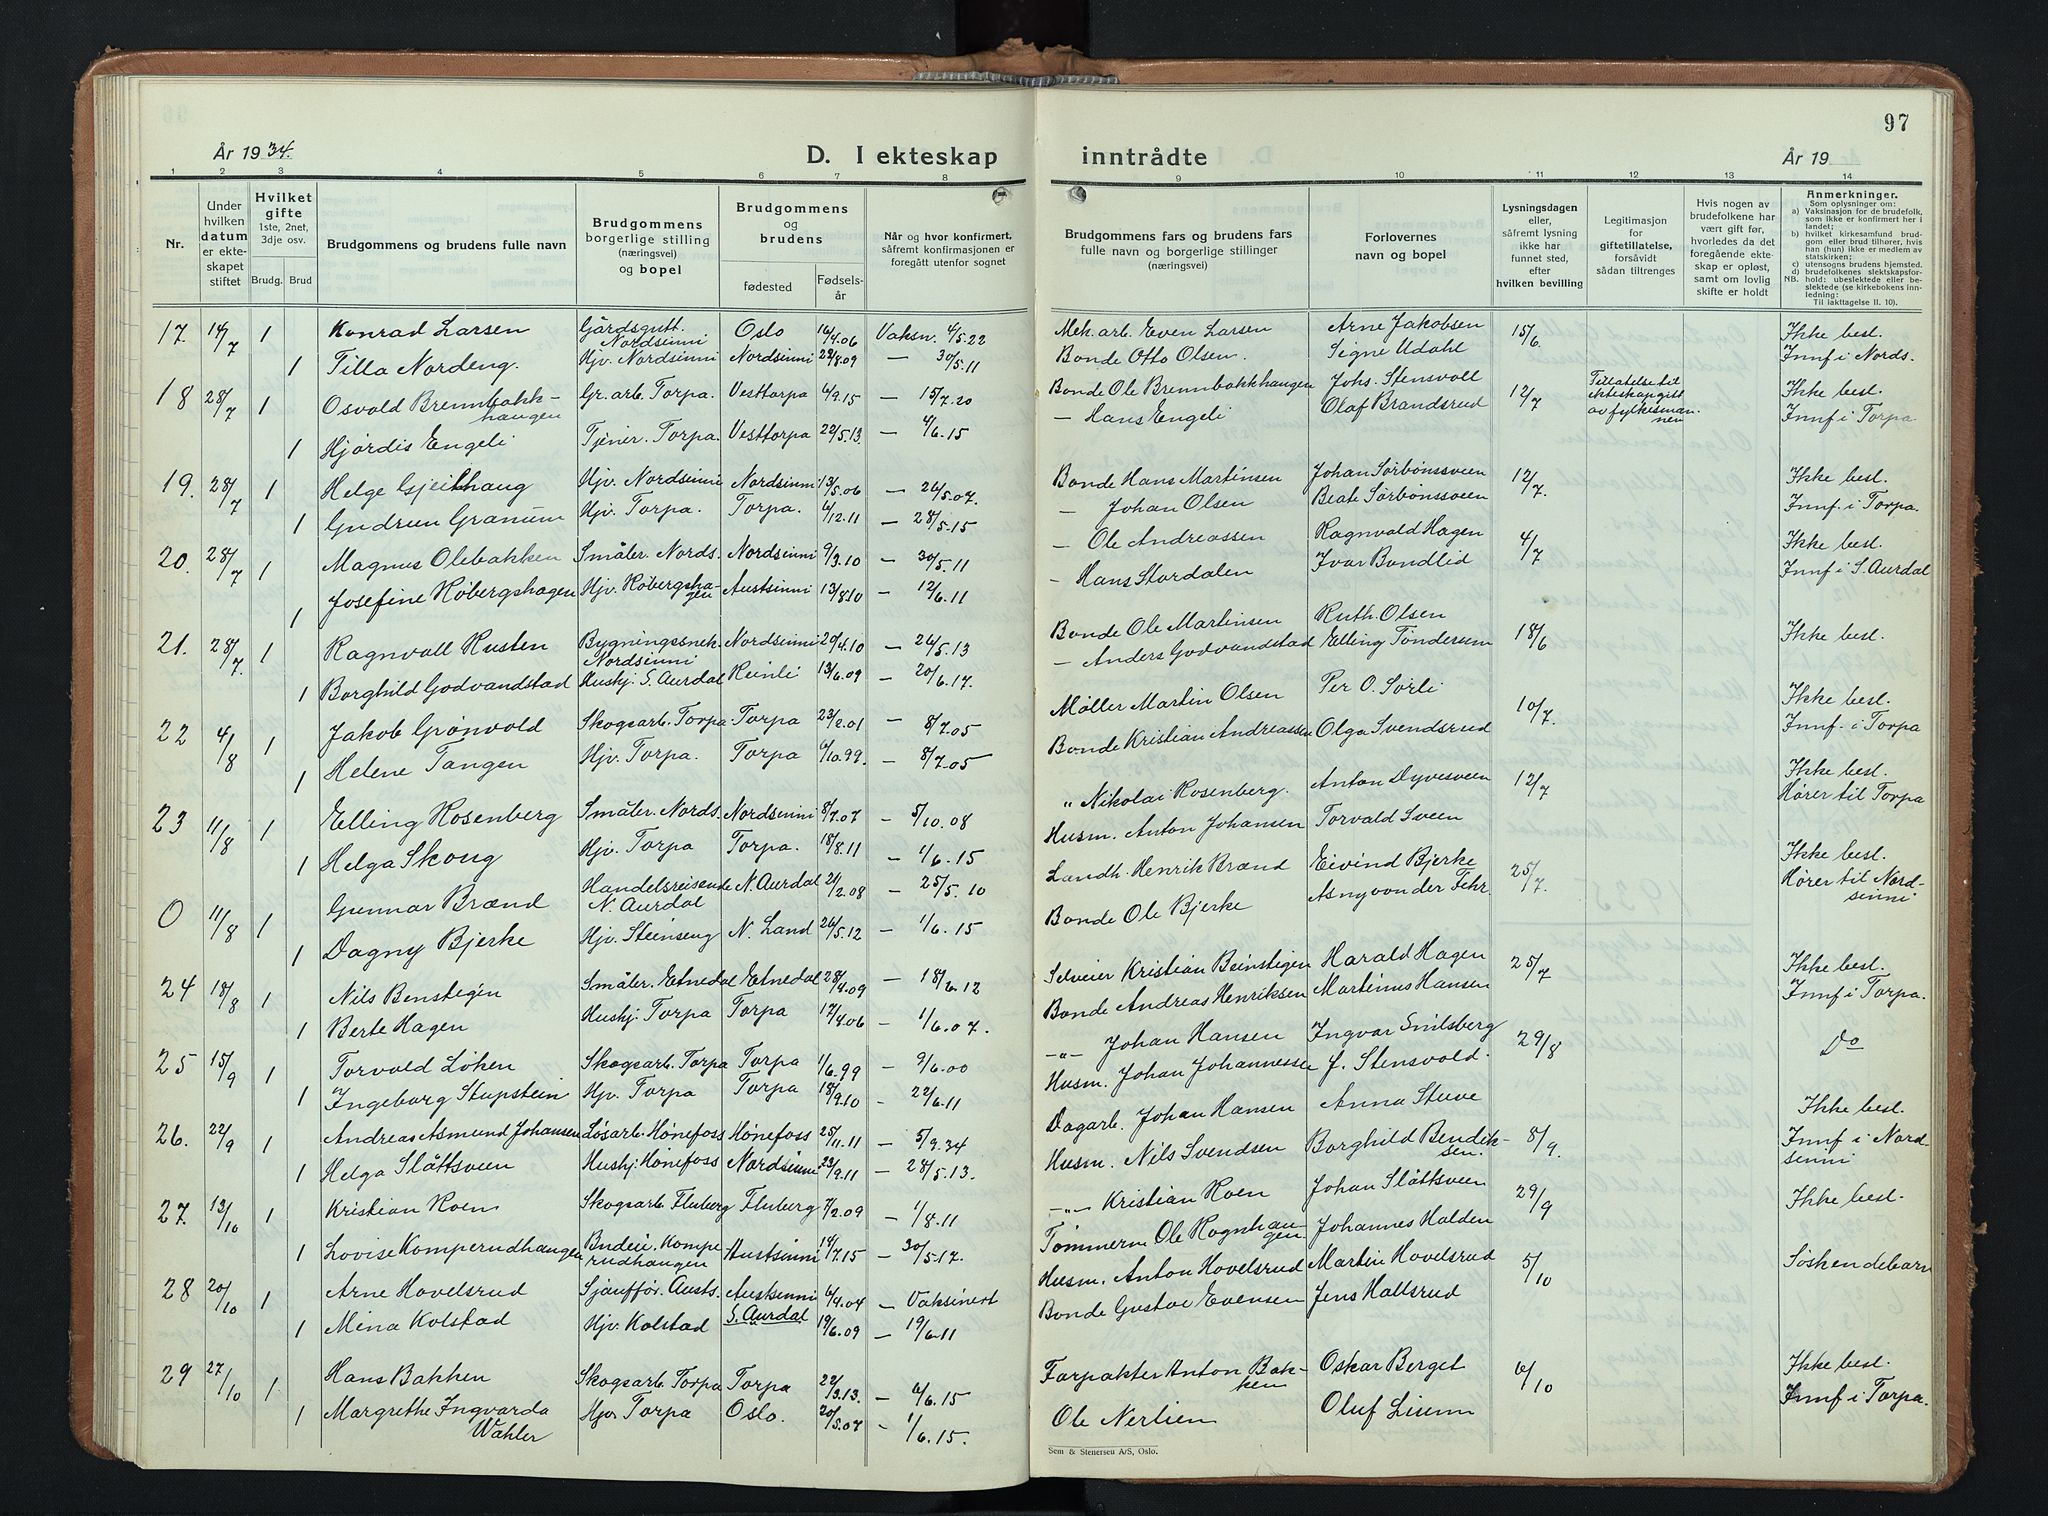 97
År 1934.
D. I ekteskap inntrådte
År 19
1 2 3 4 5 6 7 8 9 10 11 12 13 14
Nr.
Under hvilken datum er ekteskapet stiftet
Hvilket gifte 1ste, 2net, 3dje osv.
Brudg. Brud
Brudgommens og brudens fulle navn
Brudgommens borgerlige stilling (næringsvei) og bopel
Brudgommens og brudens
fødested
Fødselsår
Når og hvor konfirmert, såfremt konfirmasjonen er foregått utenfor sognet
Brudgommens fars og brudens fars fulle navn og borgerlige stillinger (næringsvei)
Forlovernes navn og bopel
Lysningsdagen eller, såfremt lysning ikke har funnet sted, efter hvilken bevilling
Legitimasjon for giftetillatelse, forsåvidt sådan tiltrenges
Hvis nogen av brudefolkene har vært gift før, hvorledes da det foregående ekteskap er opløst, samt om lovlig skifte er holdt
Anmerkninger.
Som oplysninger om:
a) Vaksinasjon for de brudefolk, som ikke er konfirmert her i landet;
b) hvilket kirkesamfund brudgom eller brud tilhører, hvis han (hun) ikke er medlem av statskirken;
c) utensogns brudens hjemsted.
d) brudefolkenes slektskapsforhold: ubeslektede eller beslektede (se kirkebokens innledning:
NB. Til iakttagelse II. 10).
17. 14/7 1 Konrad Larsen Gårdsgutt. Nordsinni Oslo 16/4.06 Vaksn. 4/5.22 Mek. arb. Even Larsen Arne Jakobsen 15/6 Ikke besl.
1 Tilla Nordeng. Hjv. Nordsinni Nordsinni 22/8.09 — 30/5.11 Bonde Otto Olsen. Signe Udahl Innf i Nords.
18 28/7 1 Osvald Brennbakkhaugen Gr. arb. Torpa. Vesttorpa 6/9.15 — 15/7.20 Bonde Ole Brennbakkhaugen Johs. Stensvoll 12/7 Tillatelse til ekteskap gitt av fylkesmannen Ikke besl.
1 Hjördis Engeli Tjener. Torpa. Vesttorpa 22/5.13 — 4/6.15 — Hans Engeli Olaf Brandsrud Innf i Torpa
19. 28/7 1 Helge Gjeithaug Hjv. Nordsinni Nordsinni 13/5.06 — 26/5.07. Bonde Hans Martinsen Johan Sørbønssveen 12/7. Ikke besl.
1 Gudrun Granum Hjv. Torpa. Torpa. 6/12.11 — 28/5.15 — Johan Olsen Beate Sørbønssveen Innf. i Torpa.
20. 28/7 1 Magnus Olebakken Småbr. Nords. Nordsinni 9/3.10 — 30/5.11 — Ole Andreassen Ragnvald Hagen 4/7 Ikke besl.
1 Josefine Købergshagen Hjv. Købergshagen Austsinni 13/8.10 — 12/6.11 — Hans Stordalen Ivar Bundlid Innf i S. Aurdal
21. 28/7. 1 Ragnvall Rusten Bygningssnek. Nordsinni Nordsinni 20/4.10 — 26/5.13 Bonde Ole Martinsen Ruth. Olsen 18/6 Ikke besl.
1 Borghild Godvandstad Hushj. S. Aurdal Reinli 13/6.09 — 20/6.17. — Anders Godvandstad Elling Tönderum
22 4/8 1 Jakob Grønvold Skogsarb. Torpa. Torpa 23/2.01 — 8/7.05 Møller Martin Olsen Per O. Sørli 10/7. Ikke besl.
1 Helene Tangen Hjv. Torpa. Torpa 6/10.99. — 8/7.05 Bonde Kristian Andreassen Olga Svendsrud Innf. i Torpa
23 11/8 1 Elling Rosenberg Småbr. Nords. Nordsinni 8/7.07 — 5/10.08 " Nikolai Rosenberg. Anton Dyvesveen 12/7 Ikke besl.
1 Helga Skoug Hjv. Torpa Torpa. 18/8.11 — 1/6.15 Husm. Anton Johansen Torvald Sveen Hører til Torpa
0 11/8 1 Gunnar Brænd Handelsreisende N. Aurdal N. Aurdal 21/2.08 — 25/5.10 Landh. Henrik Brænd Eivind Bjerke 25/7. Ikke besl.
1 Dagny Bjerke Hjv. Steinseng N. Land 26/5.12 — 1/6.15 Bonde Ole Bjerke Asny von der Fehr. Hører til Nordsinni
24 18/8 1 Nils Benstigen Småbr. Etnedal Etnedal 28/4.09 — 18/6.12 Selveier Kristian Beinstigen Harald Hagen 25/7 Ikke besl.
1 Berte Hagen Hushj. Torpa Torpa 17/4.06 — 1/6.07. Bonde Andreas Henriksen Martinus Hansen Innf i Torpa.
25 15/9 1 Torvald Löken Skogsarb. Torpa Torpa 1/6.99 — 9/6.00 —"— Johan Hansen Ingvar Smilsberg 29/8 Do
1 Ingeborg Stupstein Hjv. Torpa Torpa 18/9.10 — 22/6.11 Husm. Johan Johannessen J. Stensvold.
26. 22/9 1 Andreas Asmund Johansen Løsarb. Hønefoss Hønefoss 25/11.11 — 5/9.34 Dagarb. Johan Hansen Anna Stuve 8/9. Ikke besl.
1 Helga Slåttsveen Hushj. Hønefoss Nordsinni 23/9.11 — 28/5.13. Husm. Nils Svendsen Borghild Bendiksen. Innf i Nordsinni
27. 13/10 1 Kristian Roen Skogsarb. Fluberg Fluberg 7/2.09 — 1/8.11 —"— Kristian Roen Johan Slåttsveen 29/9 Ikke besl.
1 Lovise Komperudhaugen Budeie. Komperudhaugen Austsinni 14/7.15 — 30/5.17. Tømmerm Ole Rognhaugen Johannes Halden
28 20/10 1 Arne Hovelsrud Sjåuffør. Austs. Austsinni 6/4.04 — Vaksinert Husm. Anton Hovelsrud Martin Hovelsrud 5/10 Søskendebarn
1 Mina Kolstad Hjv. Kolstad S. Aurdal 19/6.09 — 19/6.11 Bonde Gustav Evensen Jens Hallsrud
29 27/10 1 Hans Bakken Skogsarb. Torpa Torpa 22/3.13. — 6/6.15 Forpakter Anton Bakken Oskar Berget 6/10 Ikke besl.
1 Margrethe Ingvarda Wahler Hjv. Torpa Oslo. 20/5.07 — 1/6.15. Ole Nerlien Oluf Lium Innf i Torpa.
Sem & Stenersen A/S, Oslo.